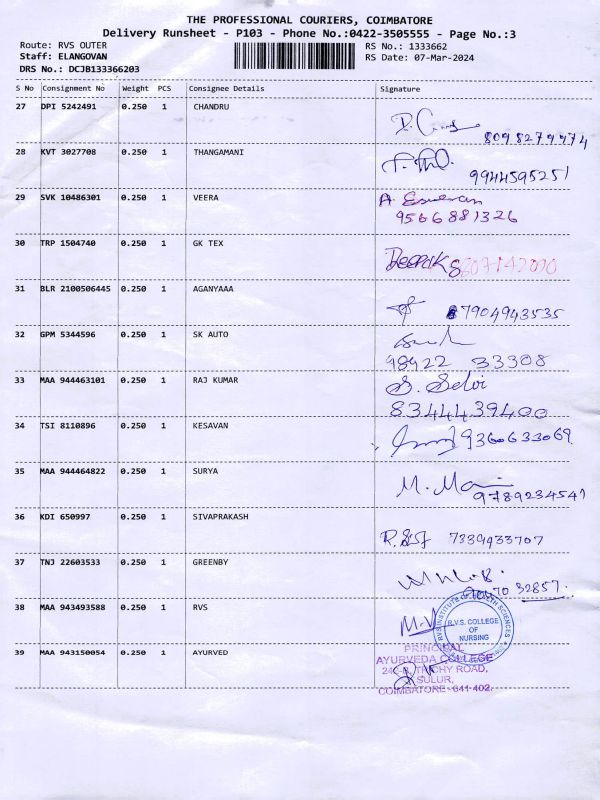 THE PROFESSIONAL COURIERS, COIMBATORE
Delivery Runsheet - P103 - Phone No.:0422-3505555 - Page No.:3
Route: RVS OUTER RS No.: 1333662
Staff: ELANGOVAN RS Date: 07-Mar-2024
DRS No.: DCJB133366203
S No Consignment No Weight PCS Consignee Details Signature
27 DPI 5242491 0.250 1 CHANDRU
28 KVT 3027708 0.250 1 THANGAMANI
9944595251
29 SVK 10486301 0.250 1 VEERA
9566881326
30 TRP 1504740 0.250 1 GK TEX
Deepak
31 BLR 2100506445 0.250 1 AGANYAAA
7904943535
32 GPM 5344596 0.250 1 SK AUTO
98922 33308
33 MAA 944463101 0.250 1 RAJ KUMAR S. Selvi
8344439400
34 TSI 8110896 0.250 1 KESAVAN
9360633069
35 MAA 944464822 0.250 1 SURYA
M. Mani
9789234541
36 KDI 650997 0.250 1 SIVAPRAKASH
7339933707
37 TNJ 22603533 0.250 1 GREENBY
32857
38 MAA 943493588 0.250 1 RVS
R.V.S. COLLEGE
OF
NURSING
39 MAA 943150054 0.250 1 AYURVED
PRINCIPAL
AYURVEDA COLLEGE
TRICHY ROAD,
SULUR,
COIMBATORE - 641 402.